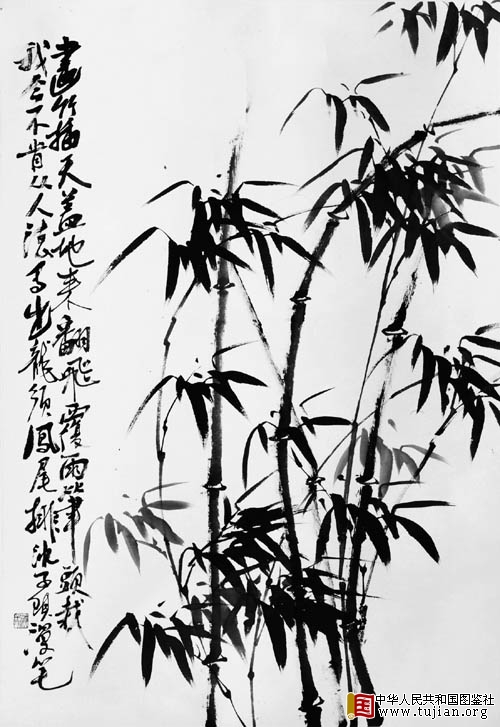 畫竹插天蓋地来翻飛覆雨筆頭栽
我今不肯从人法写出龍須鳳尾排 漫笔
中华人民共和国图鉴社
www.tujian.org